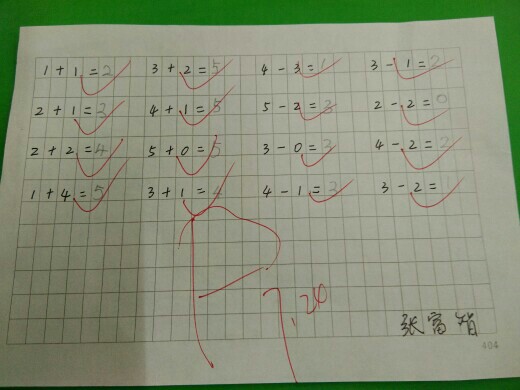 1 + 1 = 2 3 + 2 = 5 4 - 3 = 1 3 - 1 = 2
2 + 1 = 3 4 + 1 = 5 5 - 2 = 3 2 - 2 = 0
2 + 2 = 4 5 + 0 = 5 3 - 0 = 3 4 - 2 = 2
1 + 4 = 5 3 + 1 = 4 4 - 1 = 3 3 - 2 =
7.20
张富
404